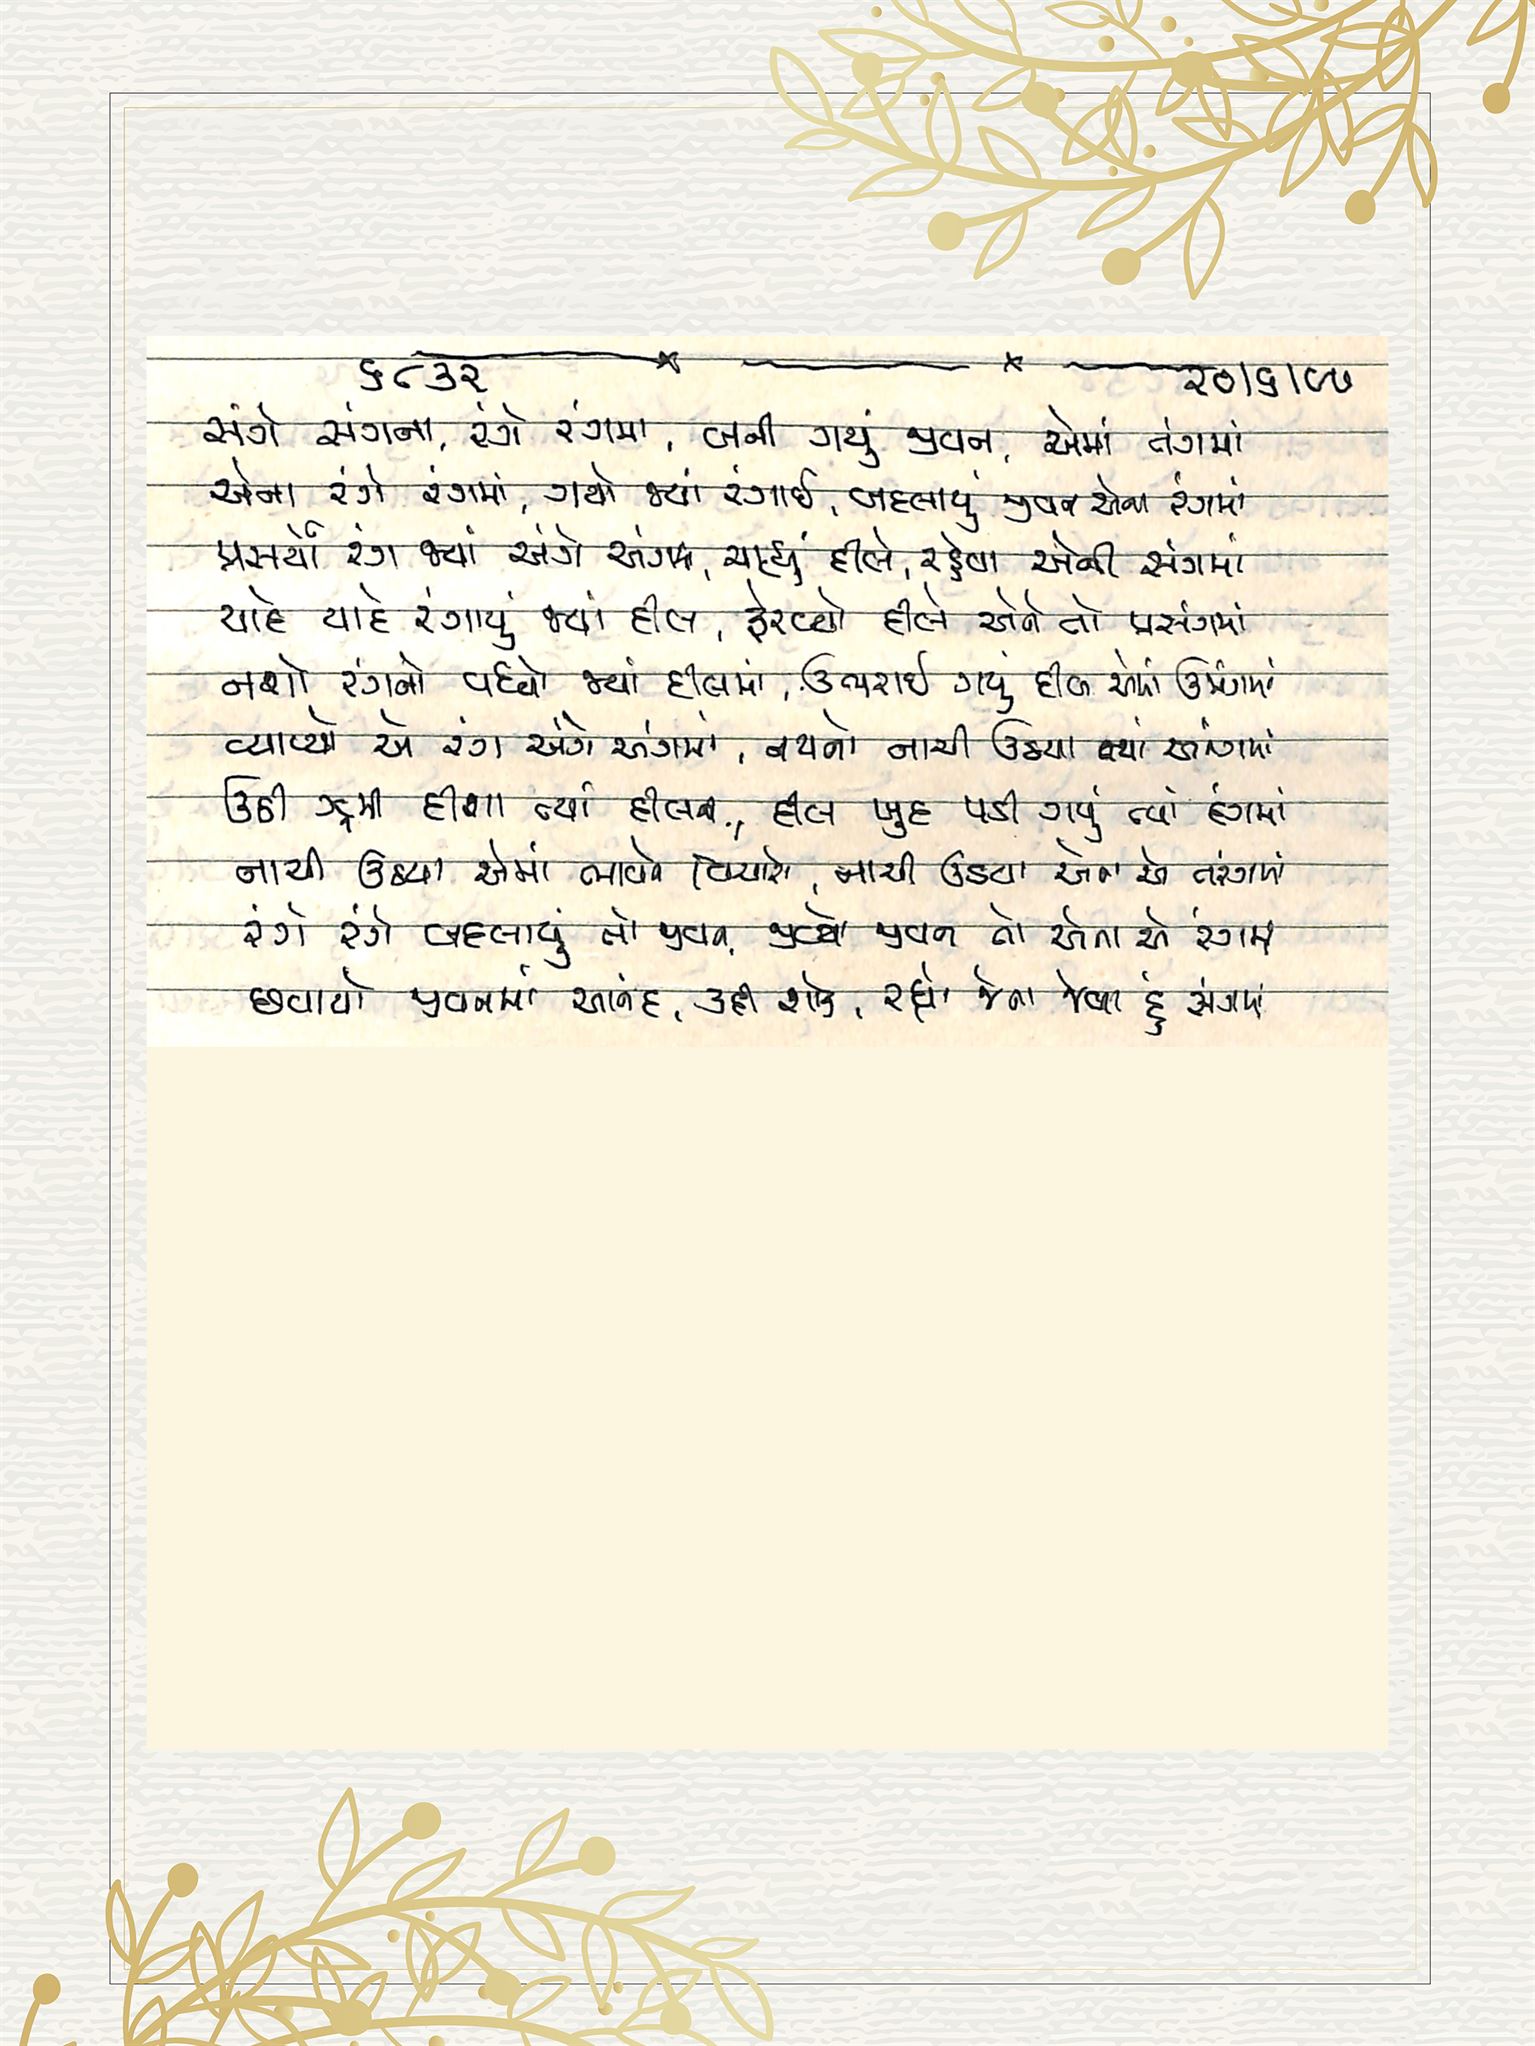 ૬૮૩૨ ૨૦/૬/૯૭
સંગે સંગના, રંગે રંગમા, બની ગયું જીવન, એમાં તંગમાં
એના રંગે રંગમાં, ગયો જ્યાં રંગાઈ, બદલાયું જીવન એના રંગમાં
પ્રસર્યો રંગ જ્યાં અંગે અંગમાં, ચાહ્યું દીલે, રહેવા એની સંગમાં
ચાહે ચાહે રંગાયું જ્યાં દીલ, ફેરવ્યો દીલે એને તો પ્રસંગમાં
નશો રંગનો વર્ધ્યો જ્યાં દીલમાં, ઉભરાઈ ગયું દીલ એમાં ઉમંગમાં
વ્યાપ્યો એ રંગ અંગે અંગમાં, નયનો નાચી ઉઠયા અંગમાં
ઉઠી ઝૂમી દીશા ત્યાં દીલના, દીલ ખુદ પડી ગયું ત્યાં દંગમાં
નાચી ઉઠયા એમાં ભાવોને વિચારો, નાચી ઉઠયા એના એ તરંગમાં
રંગે રંગે બદલાયું તો જીવન, જીવ્યો જીવન તો એના એ રંગમાં
છવાયો જીવનમાં આનંદ, ઉડી શોક, રહ્યો જેના જેવા હું સંગમાં